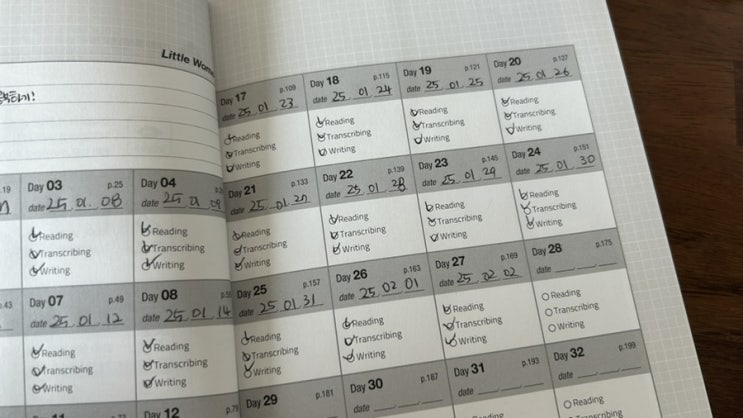 Little Wome
Day 17 p.109
date 25 01 23
Reading
Transcribing
Writing
Day 18 p.115
date 25 01 24
Reading
Transcribing
Writing
Day 19 p.121
date 25 01 25
Reading
Transcribing
Writing
Day 20 p.127
date 25 01 26
Reading
Transcribing
Writing
.19
Day 03 p.25
date 25 01 08
Reading
Transcribing
Writing
Day 04
date 25 01 09
Reading
Transcribing
Writing
Day 21 p.133
date 25 01 27
Reading
Transcribing
Writing
Day 22 p.139
date 25 01 28
Reading
Transcribing
Writing
Day 23 p.145
date 25 01 29
Reading
Transcribing
Writing
Day 24 p.151
date 25 01 30
Reading
Transcribing
Writing
.43
Day 07 p.49
date 25 01 12
Reading
Transcribing
Writing
Day 08 p.55
date 25 01 14
Reading
Transcribing
Writing
Day 25 p.157
date 25 01 31
Reading
Transcribing
Writing
Day 26 p.163
date 25 02 01
Reading
Transcribing
Writing
Day 27 p.169
date 25 02 02
Reading
Transcribing
Writing
Day 28 p.175
date
Reading
Transcribing
Writing
Day 12 p.79
Day 29 p.181
Day 30 p.187
date
Day 31 p.193
date
Reading
Day 32 p.199
date
Reading